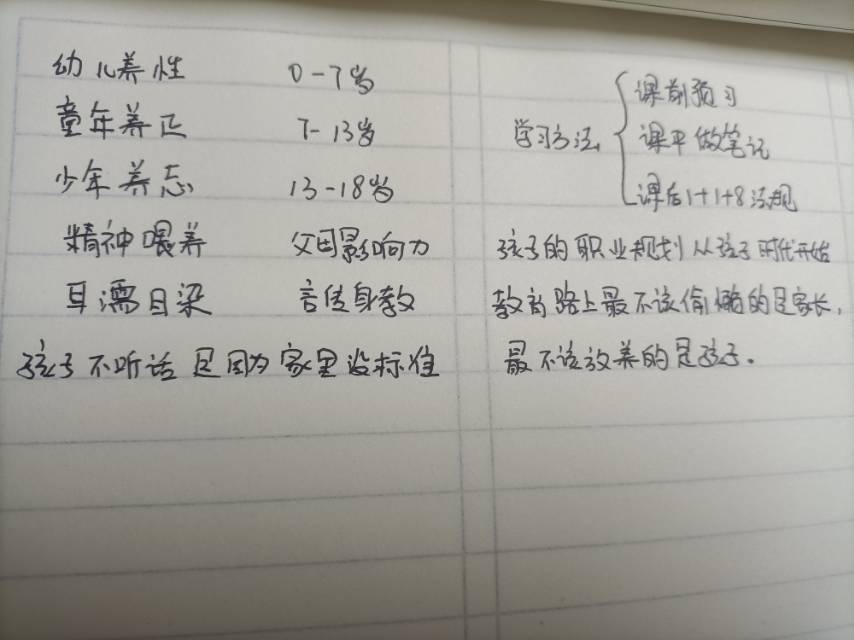 幼儿养性 0-7岁
童年养正 7-13岁
少年养志 13-18岁
精神喂养 父母影响力
耳濡目染 言传身教
孩子不听话是因为家里没标准
学习方法
课前预习
课中做笔记
课后1+1+8法规
孩子的职业规划从孩子时代开始
教育路上最不该偷懒的是家长,
最不该放养的是孩子.